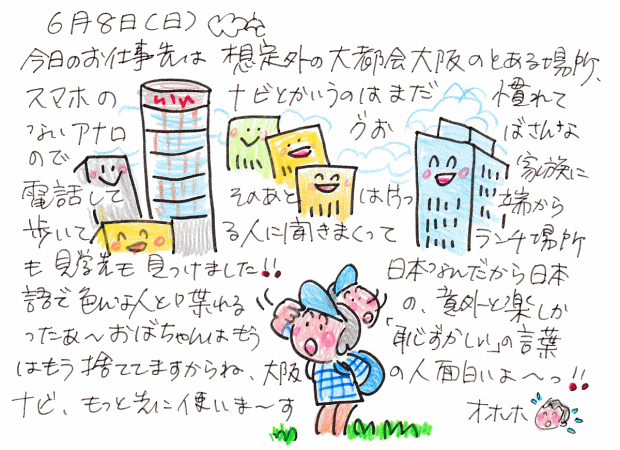 6月8日(日)
今日のお仕事先は 想定外の大都会大阪のとある場所、
スマホの ナビとかいうのはまだ 慣れて
ないアナロ グお ばさんな
ので 家族に
電話して そのあと は片っ 端から
歩いて る人に聞きまくって ランチ場所
も見学先も見つけました!! 日本なんだから日本
語で色んな人と喋れる の、意外と楽しか
ったぁ〜おばちゃんはもう 「恥ずかしい」の言葉
はもう捨ててますからね、大阪 の人面白いよ〜っ!!
ナビ、もっと先に使いま〜す オホホ